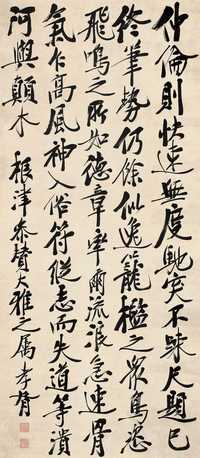 仲倫則快速無度馳突不疎尺題已
終筆勢仍餘似逸籠檻之眾鳥恣
飛鳴之所如德章率爾流浪急速骨
氣乍高風神入俗符縱志而失道等潰
河與顛木 根津大雅之屬孝胥